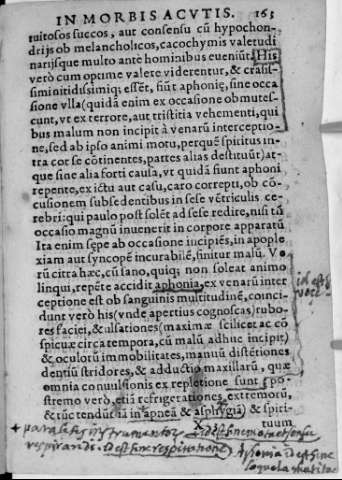 IN MORBIS ACVTIS. 163
tuitosos succos, aut consensu cū hypochon-
drijs ob melancholicos, cacochymis valetudi
narijsque multo antè hominibus eveniūt. His
verò cum optime valere viderentur, & crassis-
siminitidissimiq; essēt, fiūt aphonię, sine occa
sione vlla (quidā enim ex occasione obmutes-
cunt, vt ex terrore, aut tristitia vehementi, qui
bus malum non incipit à venarū interceptio-
ne, sed ab ipso animi motu, perquē spiritus in-
tra cor se cōtinentes, partes alias destituūt) at-
que sine alia forti causa, vt quidā fiunt aphoni
repente, ex ictu aut casu, caro correpti, ob cō-
cusionem subsedentibus in sese vētriculis ce-
rebri: qui paulo post solēt ad sese redire, nisi tā
occasio magnū inuenerit in corpore apparatū
Ita enim sępe ab occasione incipiēs, in apople
xiam aut syncopē incurabilē, finitur malū. Ve
rū citra hæc, cū sano, quiq; non soleat animo
linqui, repēte accidit aphonia, ex venarū inter
ceptione est ob sanguinis multitudinē, coinci-
dunt verò his (vnde apertius cognoscas) rubo-
res faciei, & ulsationes (maximæ scilicet ac cō
spicuæ circa tempora, cū malū adhuc incipit)
& oculorū immobilitates, manuū distētiones
dentiū stridores, & adductio maxillarū, quæ
omnia convulsionis ex repletione sunt: po-
stremo verò, etiā refrigerationes extremorū,
& tūc tendūt ia in apnea & asphygiā) & spiri-
X tuum